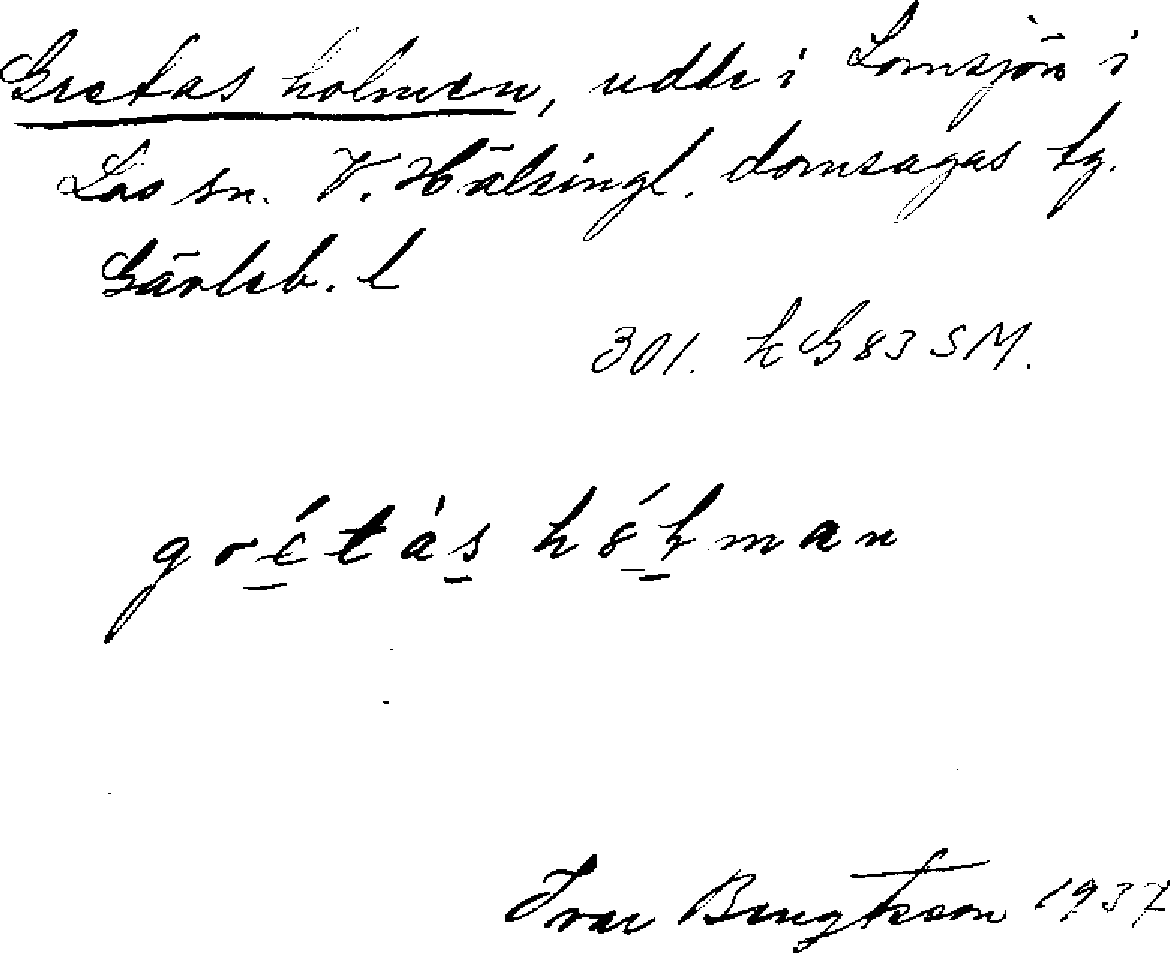 Gretas holmen, udde i Lomsjön i
Los sn. V. Hälsingl. domsagas tg.
Gävleb. l
301. h G 83 SM.
grétàs hólman
Ivar Bengtsson 1937